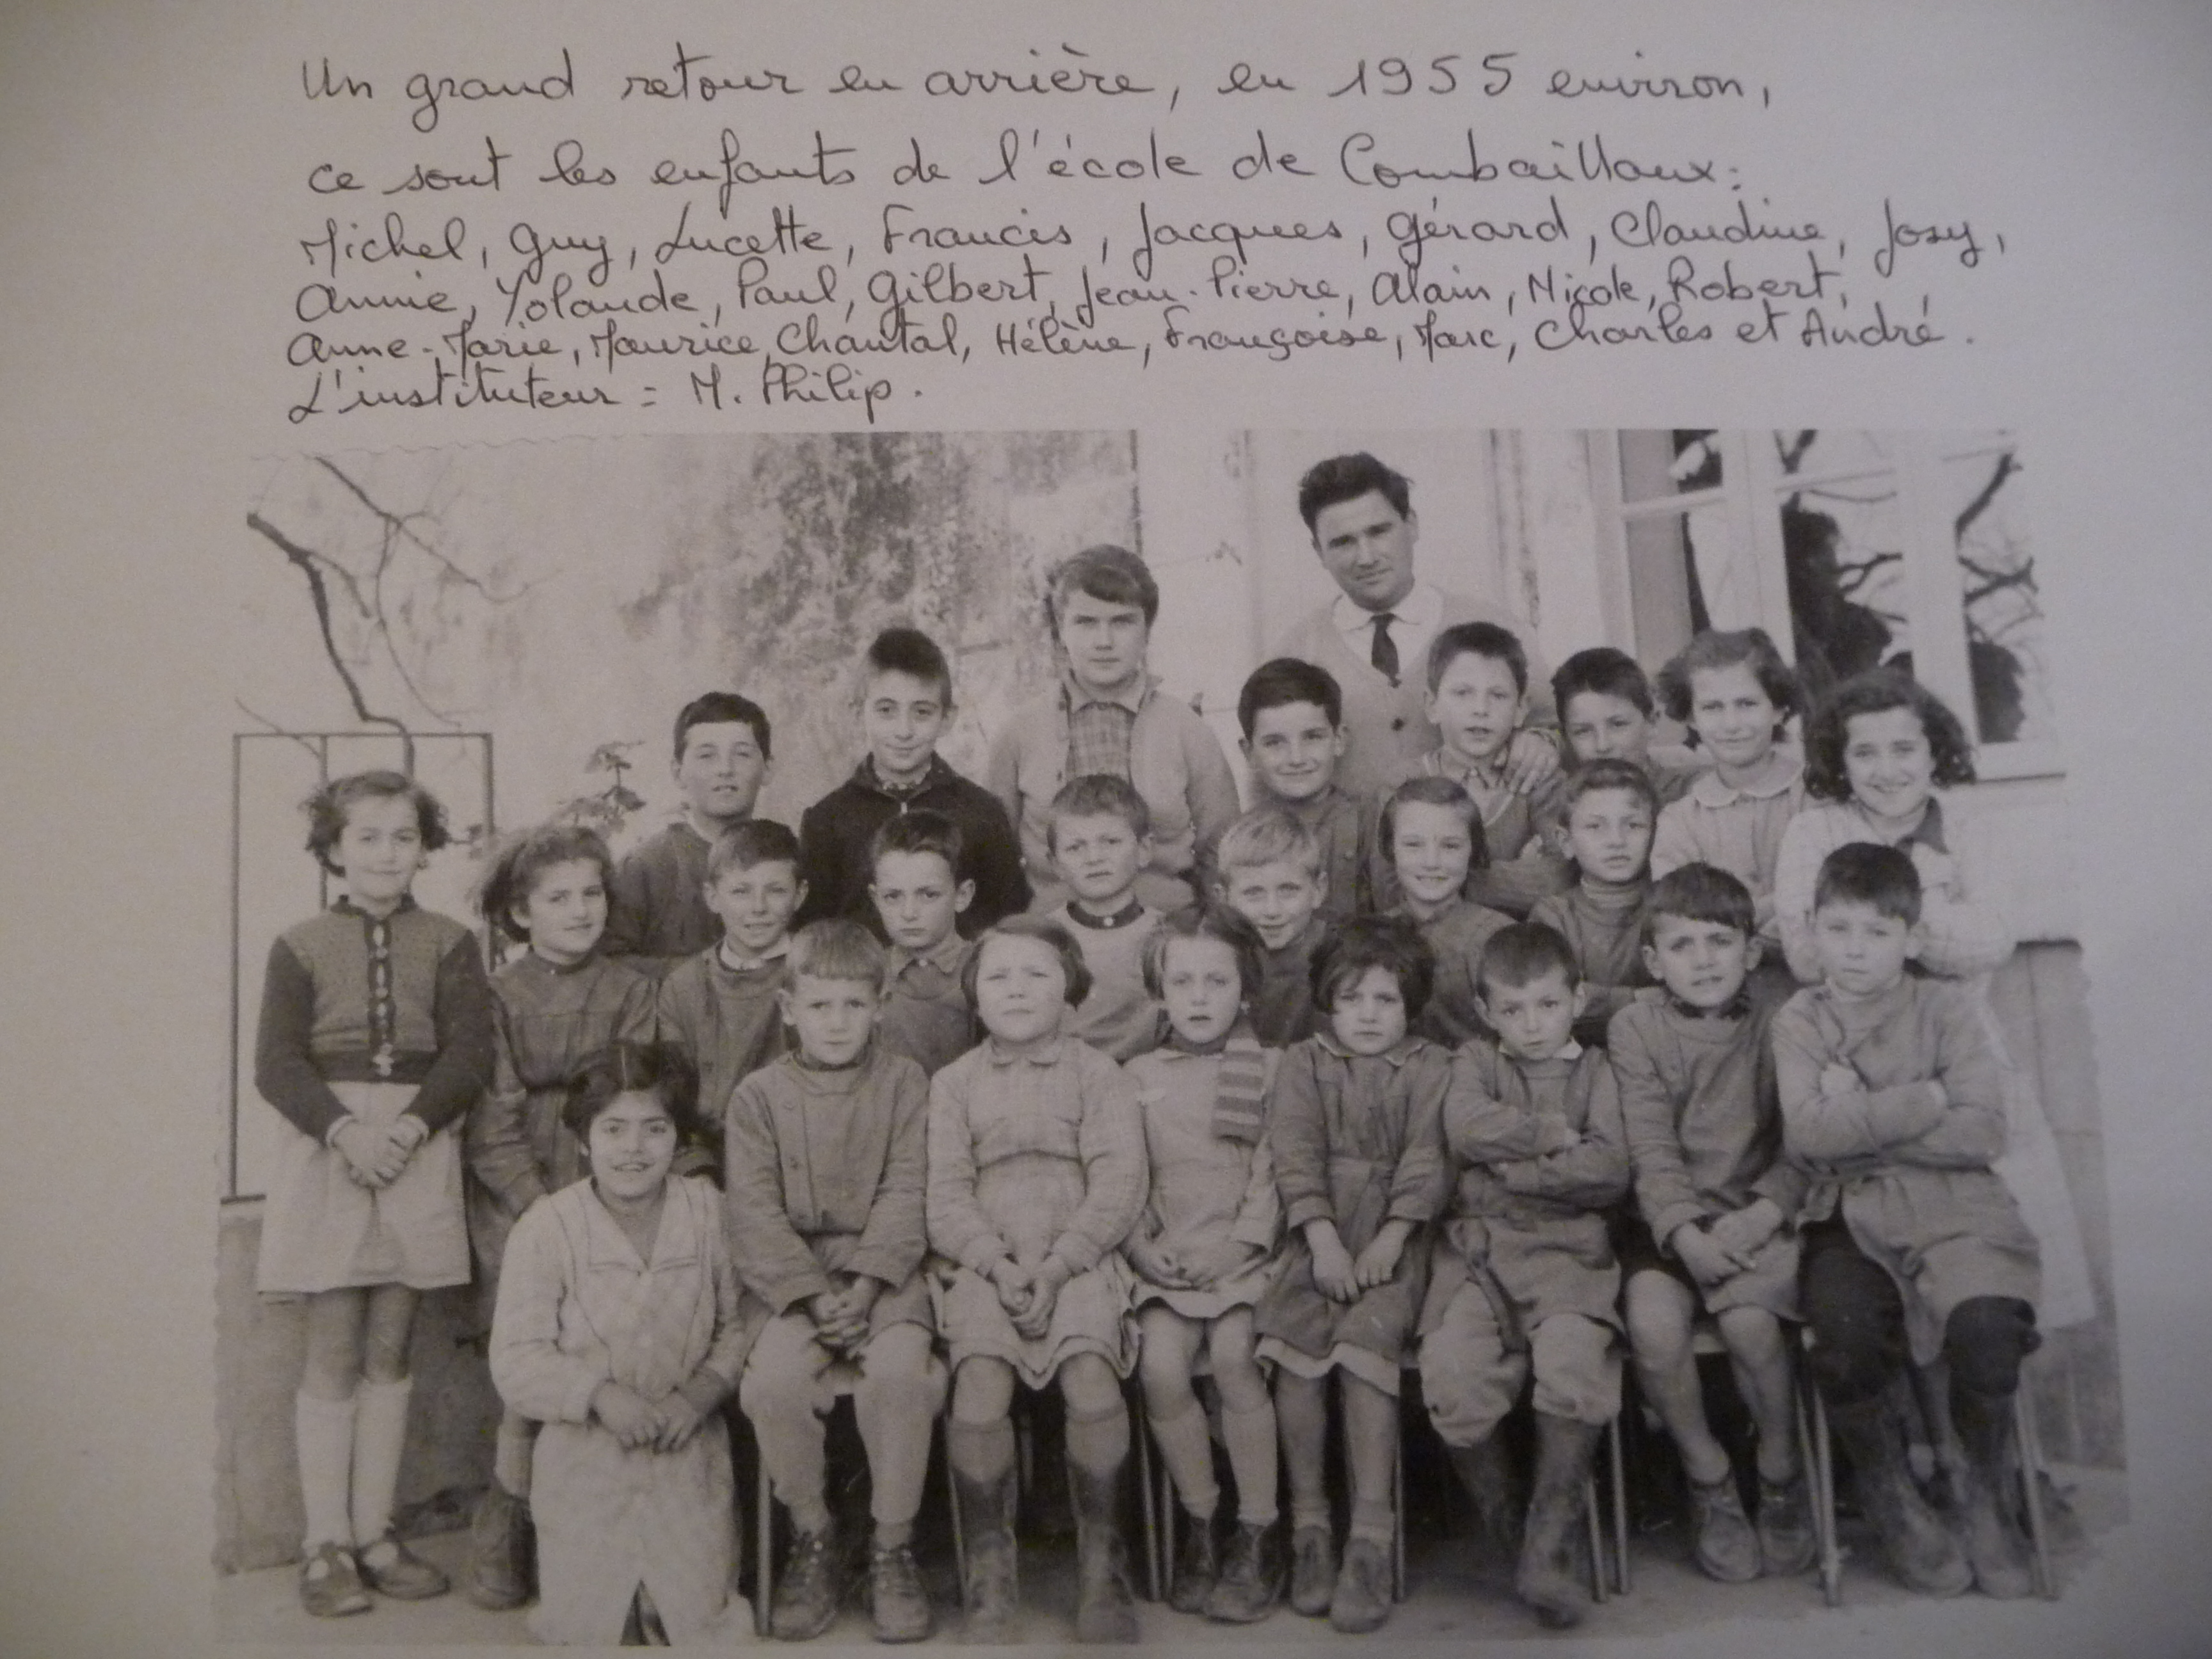 Un grand retour en arrière, en 1955 environ,
ce sont les enfants de l'école de Combaillaux:
Michel, Guy, Lucette, Francis, Jacques, Gérard, Claudine, Josy,
Annie, Yolande, Paul, Gilbert, Jean-Pierre, Alain, Nicole, Robert,
Anne-Marie, Maurice, Chantal, Hélène, Françoise, Marc, Charles et André.
L'instituteur = M. Philip.